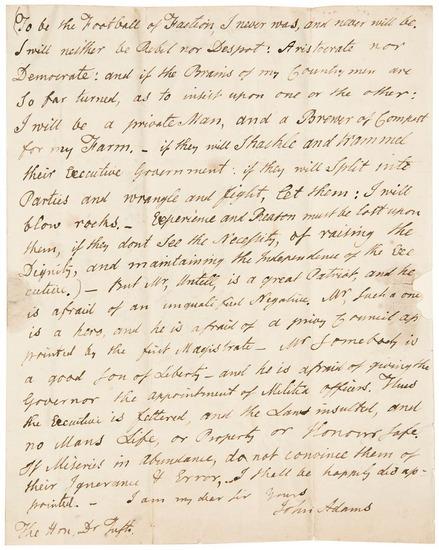 (To be the Football of Faction, I never was, and never will be.
I will neither be Rebel nor Despot: Aristocrate nor
Democrate: and if the Brains of my Countrymen are
So far turned, as to insist upon one or the other:
I will be a private Man, and a Brewer of Compost
for my Farm. - if they will Shackle and trammel
their Executive Government: if they will Split into
Parties and wrangle and fight, let them: I will
blow rocks. - Experience and Reason must be lost upon
them, if they dont See the Necessity, of raising the
Dignity, and maintaining the Independence of the Exe
cutive.) - But Mr, is a great Patriot, and he
is afraid of an unqualified Negative. Mr Such a one
is a hero, and he is afraid of a privy Council ap
pointed by the first Magistrate - Mr Somebody is
a good Son of Liberty - and he is afraid of giving the
Governor the appointment of Militia officers. Thus
the Executive is fettered, and the Laws insulted, and
no Mans Life, or Property or Honour Safe.
If Miseries in abundance, do not convince them of
their Ignorance & Error, I shall be happily disap-
pointed. - I am my dear Sir Yours
John Adams
The Hon. Dr Tufts.